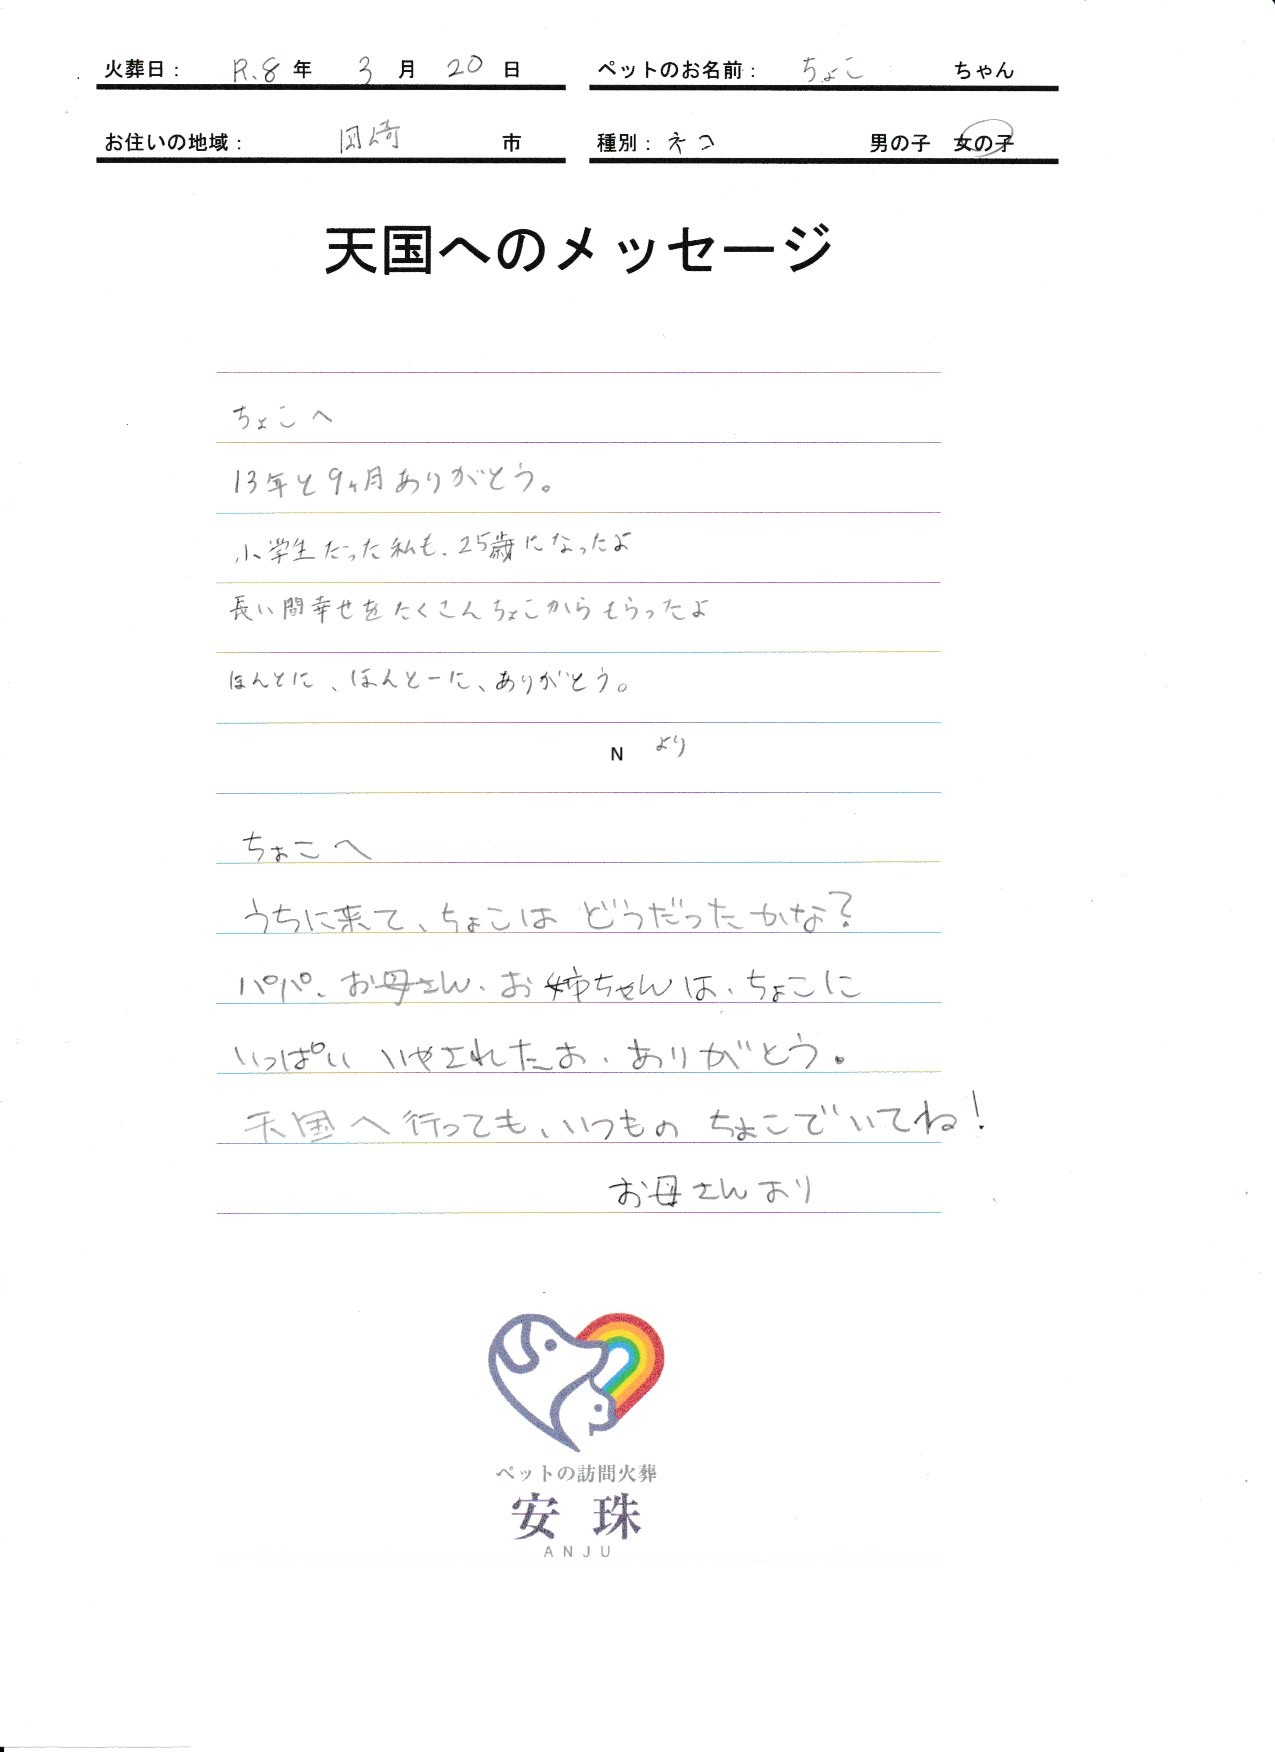 火葬日： R.8 年 3 月 20 日 ペットのお名前： ちょこ ちゃん
お住いの地域： 岡崎 市 種別： ネコ 男の子 女の子
天国へのメッセージ
ちょこへ
13年と9ヶ月ありがとう。
小学生だった私も、25歳になったよ
長い間幸せをたくさんちょこからもらったよ
ほんとに、ほんとーに、ありがとう。
N より
ちょこへ
うちに来て、ちょこは どうだったかな？
パパ、お母さん、お姉ちゃんは、ちょこに
いっぱい いやされたよ、ありがとう。
天国へ行っても、いつもの ちょこでいてね！
お母さんより
ペットの訪問火葬
安珠
ANJU